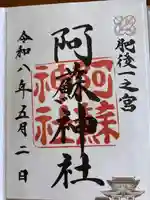 肥後一之宮
阿蘇神社
令和八年五月二日
阿蘇
神社